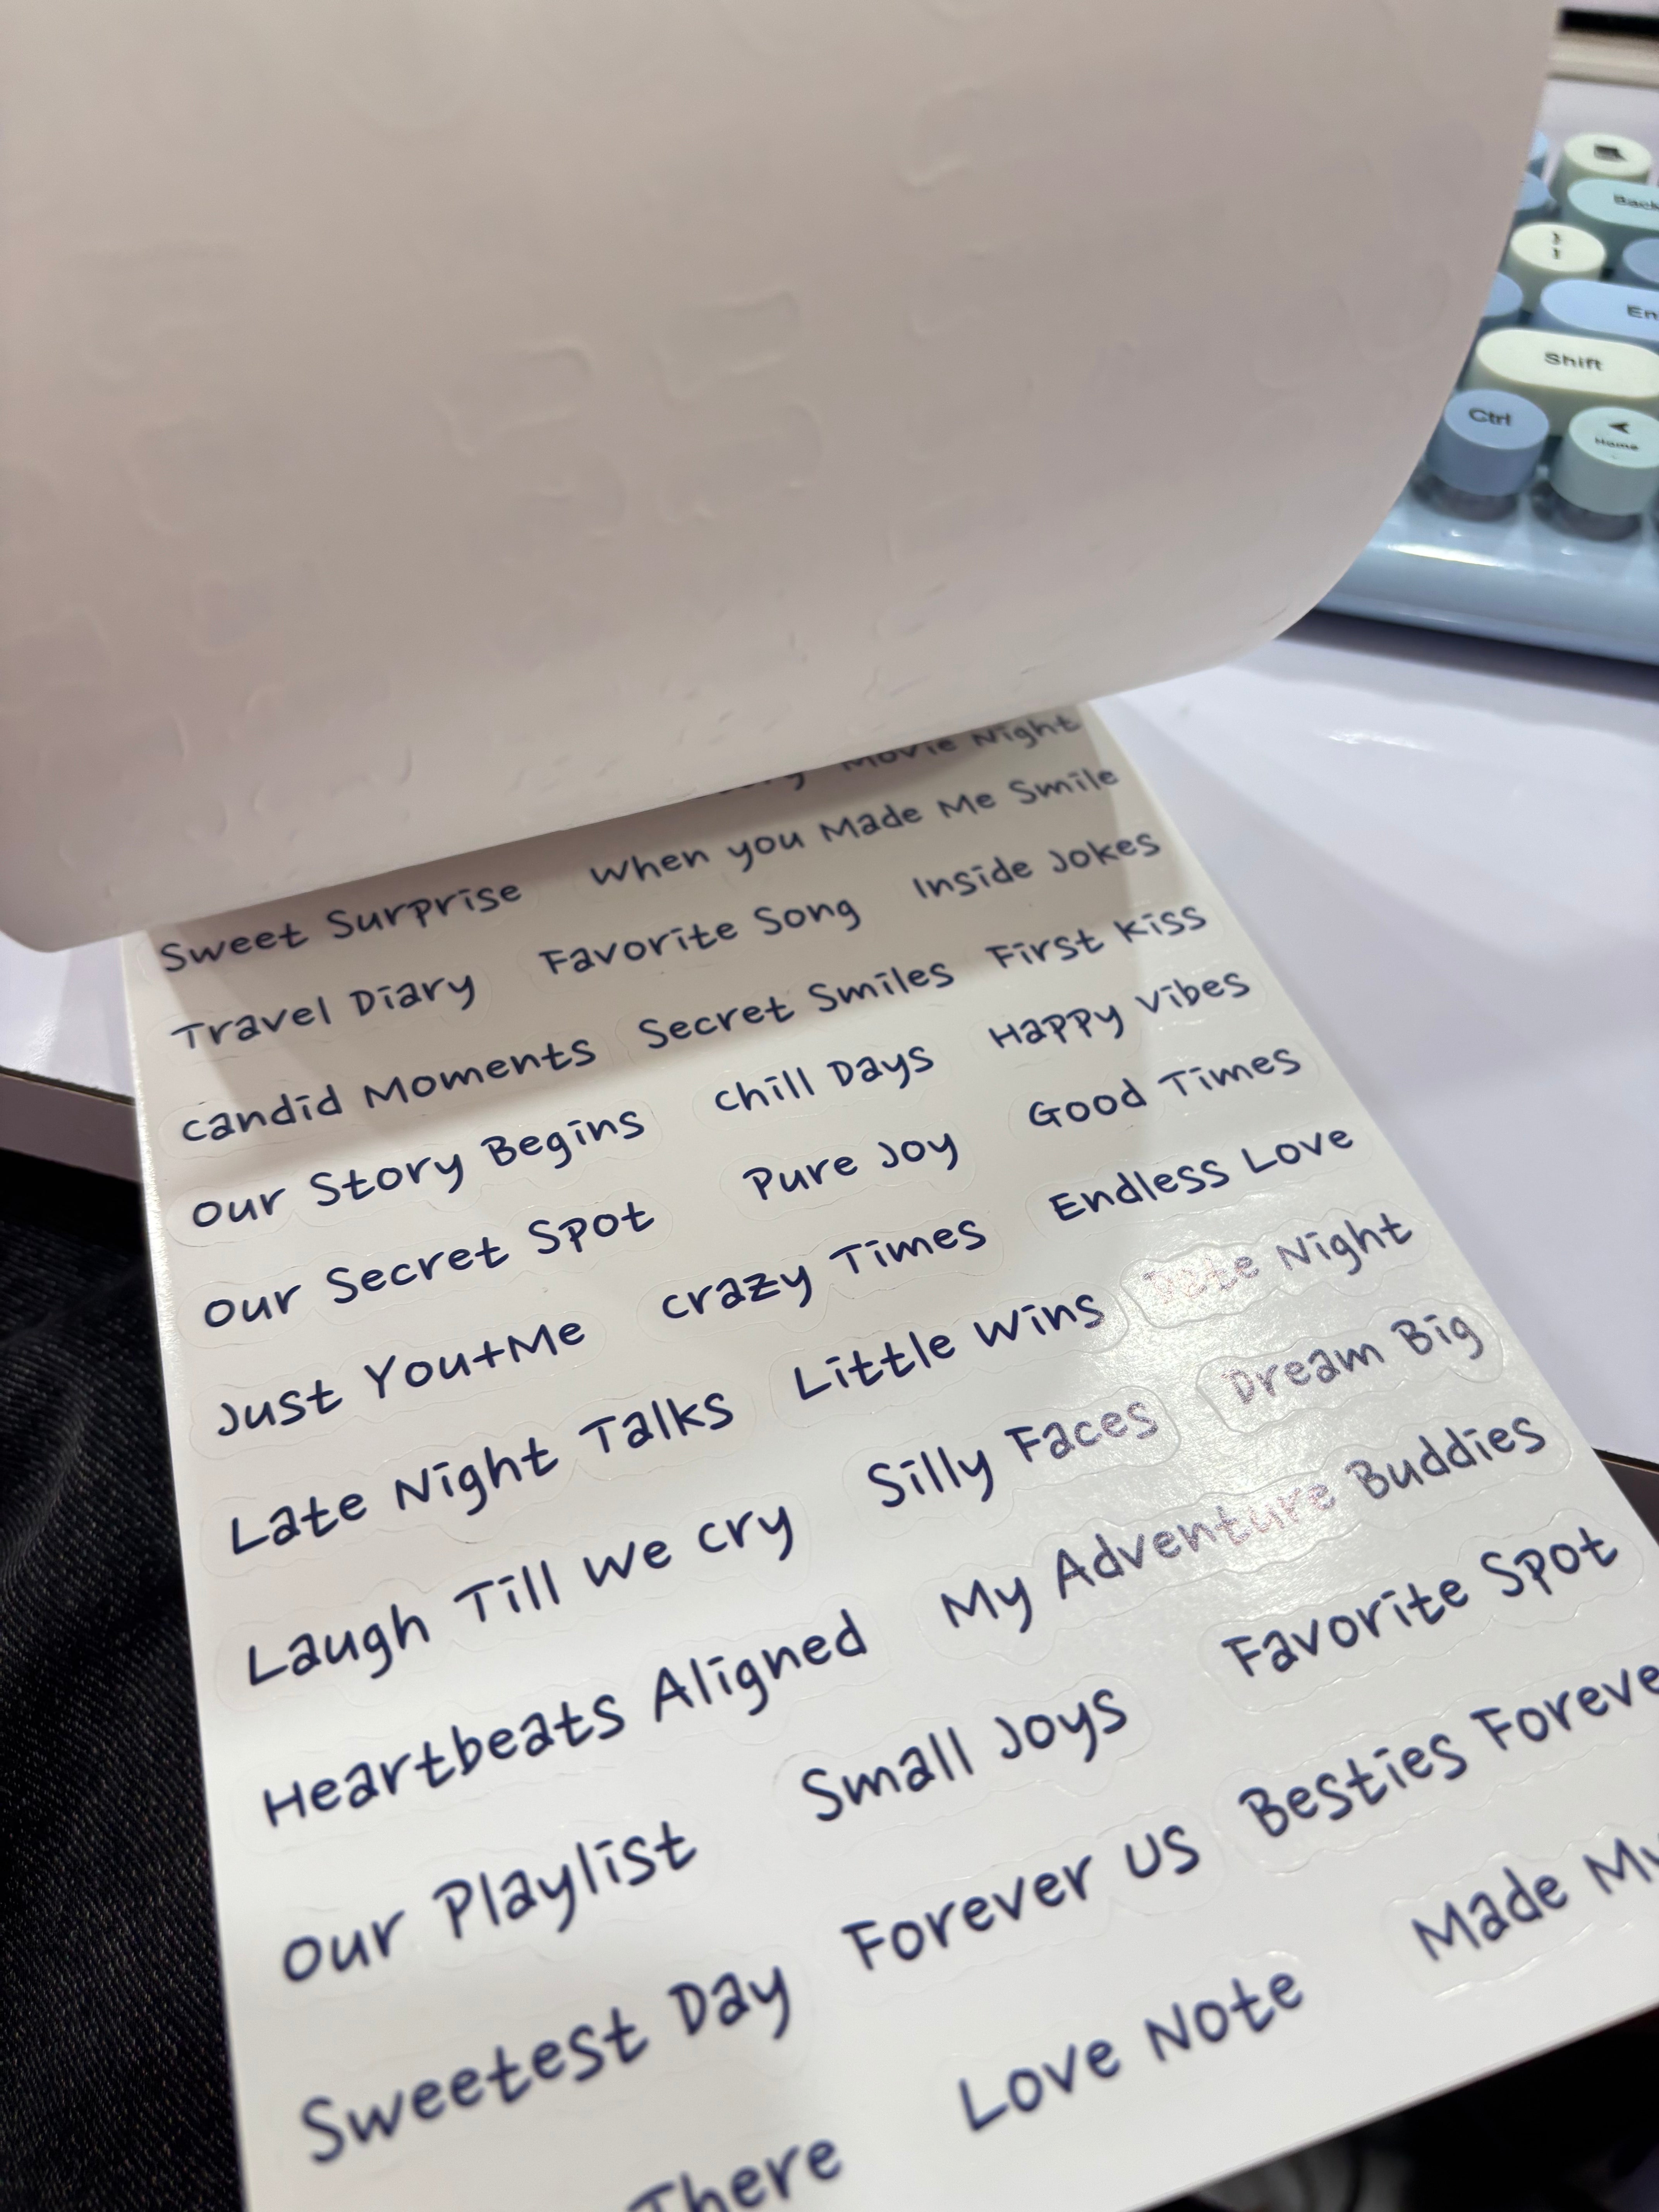 Movie Night
Sweet Surprise When you Made Me Smile
Travel Diary Favorite Song Inside Jokes
Candid Moments Secret Smiles First Kiss
Our Story Begins Chill Days Happy Vibes
Our Secret Spot Pure Joy Good Times
Just You+Me Crazy Times Endless Love
Late Night Talks Little Wins Date Night
Laugh Till We Cry Silly Faces Dream Big
Heartbeats Aligned My Adventure Buddies
Our Playlist Small Joys Favorite Spot
Sweetest Day Forever Us Besties Foreve
There Love Note Made My
Back
}
]
En
Shift
Ctrl
Home